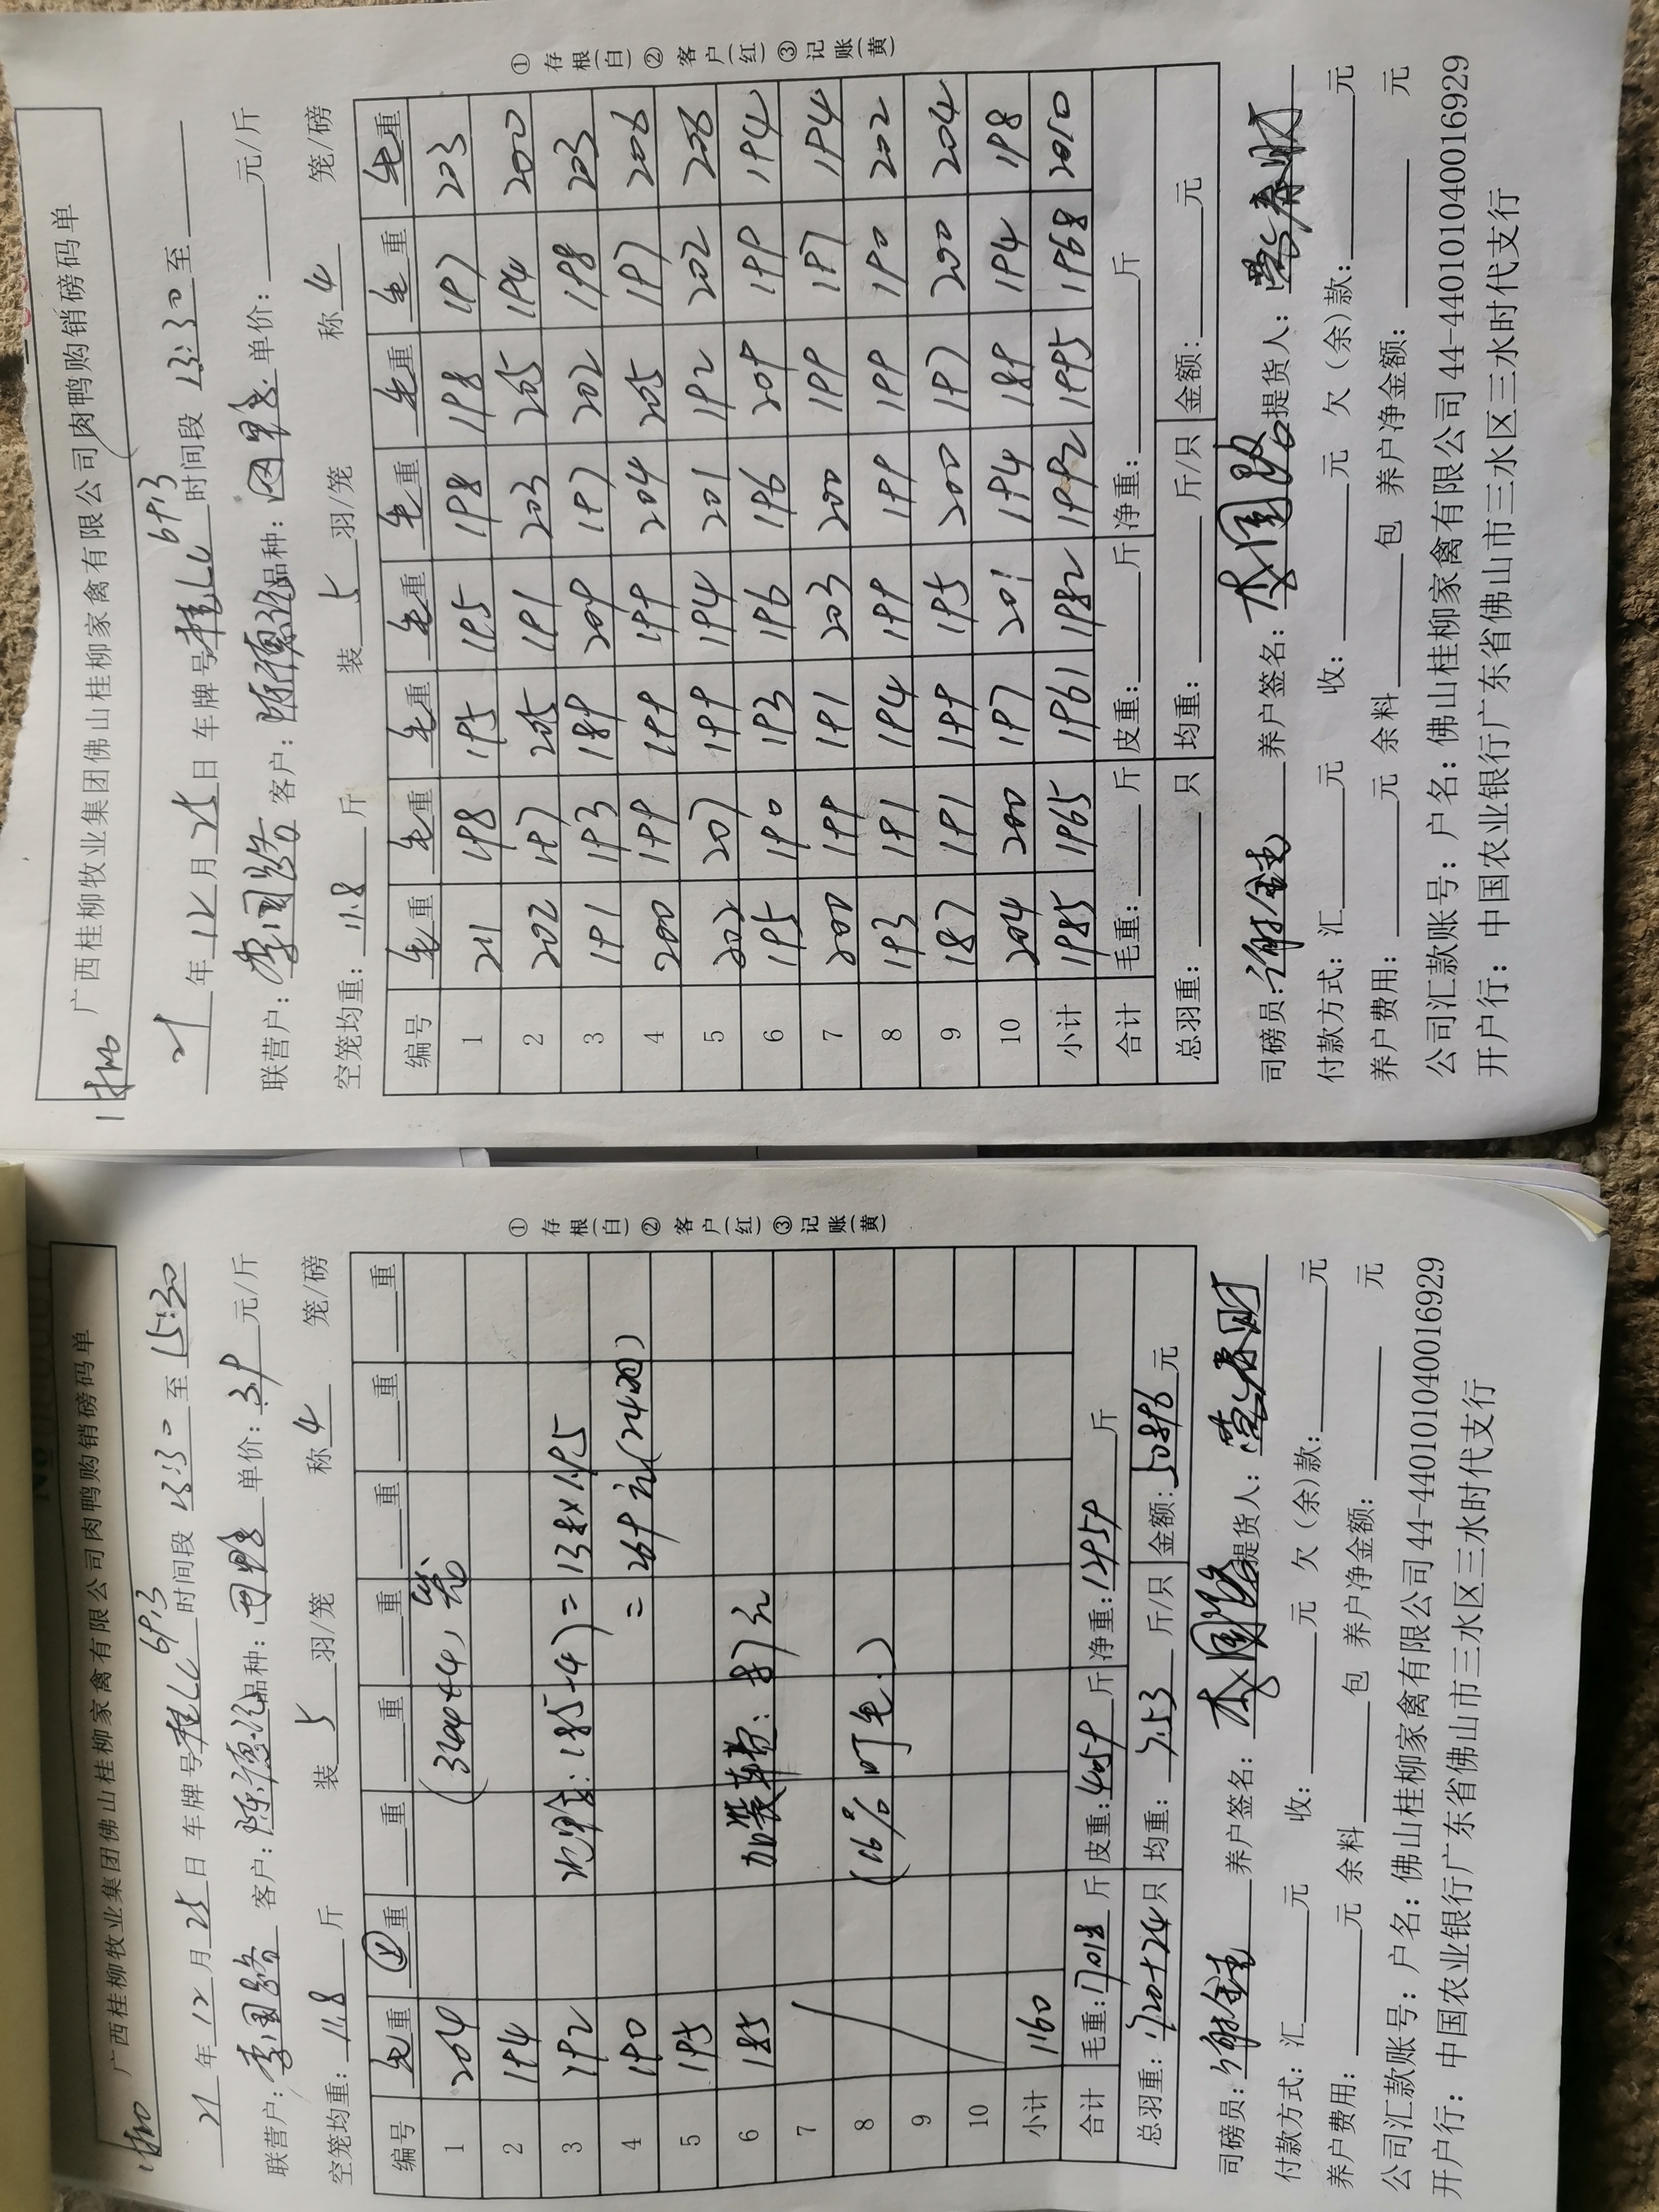 广西桂柳牧业集团佛山桂柳家禽有限公司肉鸭购销磅码单
21年12月25日 车牌号桂LC6913 时间段13:30至
联营户:李国路 客户:陈德 品种: 单价: 元/斤
空笼均重:11.8斤 装5羽/笼 称4笼/磅
① 存根(白) ② 客户(红) ③ 记账(黄)
编号 毛重 毛重 毛重 毛重 毛重 毛重 毛重 毛重
1 211 198 195 195 198 198 197 203
2 202 197 205 191 203 205 194 200
3 191 193 189 209 197 202 198 203
4 200 199 199 199 204 205 197 206
5 202 207 199 194 201 192 202 206
6 195 190 193 196 196 209 199 194
7 200 199 191 203 200 199 197 194
8 193 191 194 199 199 199 190 202
9 187 191 199 195 200 197 200 204
10 204 200 197 201 194 189 194 198
小计 1985 1965 1961 1982 1992 1995 1968 2010
合计 毛重: 斤 皮重: 斤 净重: 斤
总羽重: 只 均重: 斤/只 金额: 元
司磅员: 养户签名:李国路 提货人:
付款方式:汇 元 收: 元 欠(余)款: 元
养户费用: 元 余料 包 养户净金额: 元
公司汇款账号:户名:佛山桂柳家禽有限公司 44-440101040016929
开户行:中国农业银行广东省佛山市三水区三水时代支行
广西桂柳牧业集团佛山桂柳家禽有限公司肉鸭购销磅码单
21年12月25日 车牌号桂LC6913 时间段13:30至15:30
联营户:李国路 客户:陈德 品种: 单价:3.9元/斤
空笼均重:11.8斤 装5羽/笼 称4笼/磅
① 存根(白) ② 客户(红) ③ 记账(黄)
编号 毛重 重 重 重 重 重 重 重
1 204 (344+4) 笼
2 194
3 192 =138×1.95
4 190 =269元(24羽)
5 195
6 185 加装车费:87元
7
8 (16% 叮毛)
9
10
小计 1160
合计 毛重:17018斤 皮重:4059斤 净重:12959斤
总羽重:1720+24只 均重:7.53斤/只 金额:50896元
司磅员: 养户签名:李国路 提货人:
付款方式:汇 元 收: 元 欠(余)款: 元
养户费用: 元 余料 包 养户净金额: 元
公司汇款账号:户名:佛山桂柳家禽有限公司 44-440101040016929
开户行:中国农业银行广东省佛山市三水区三水时代支行